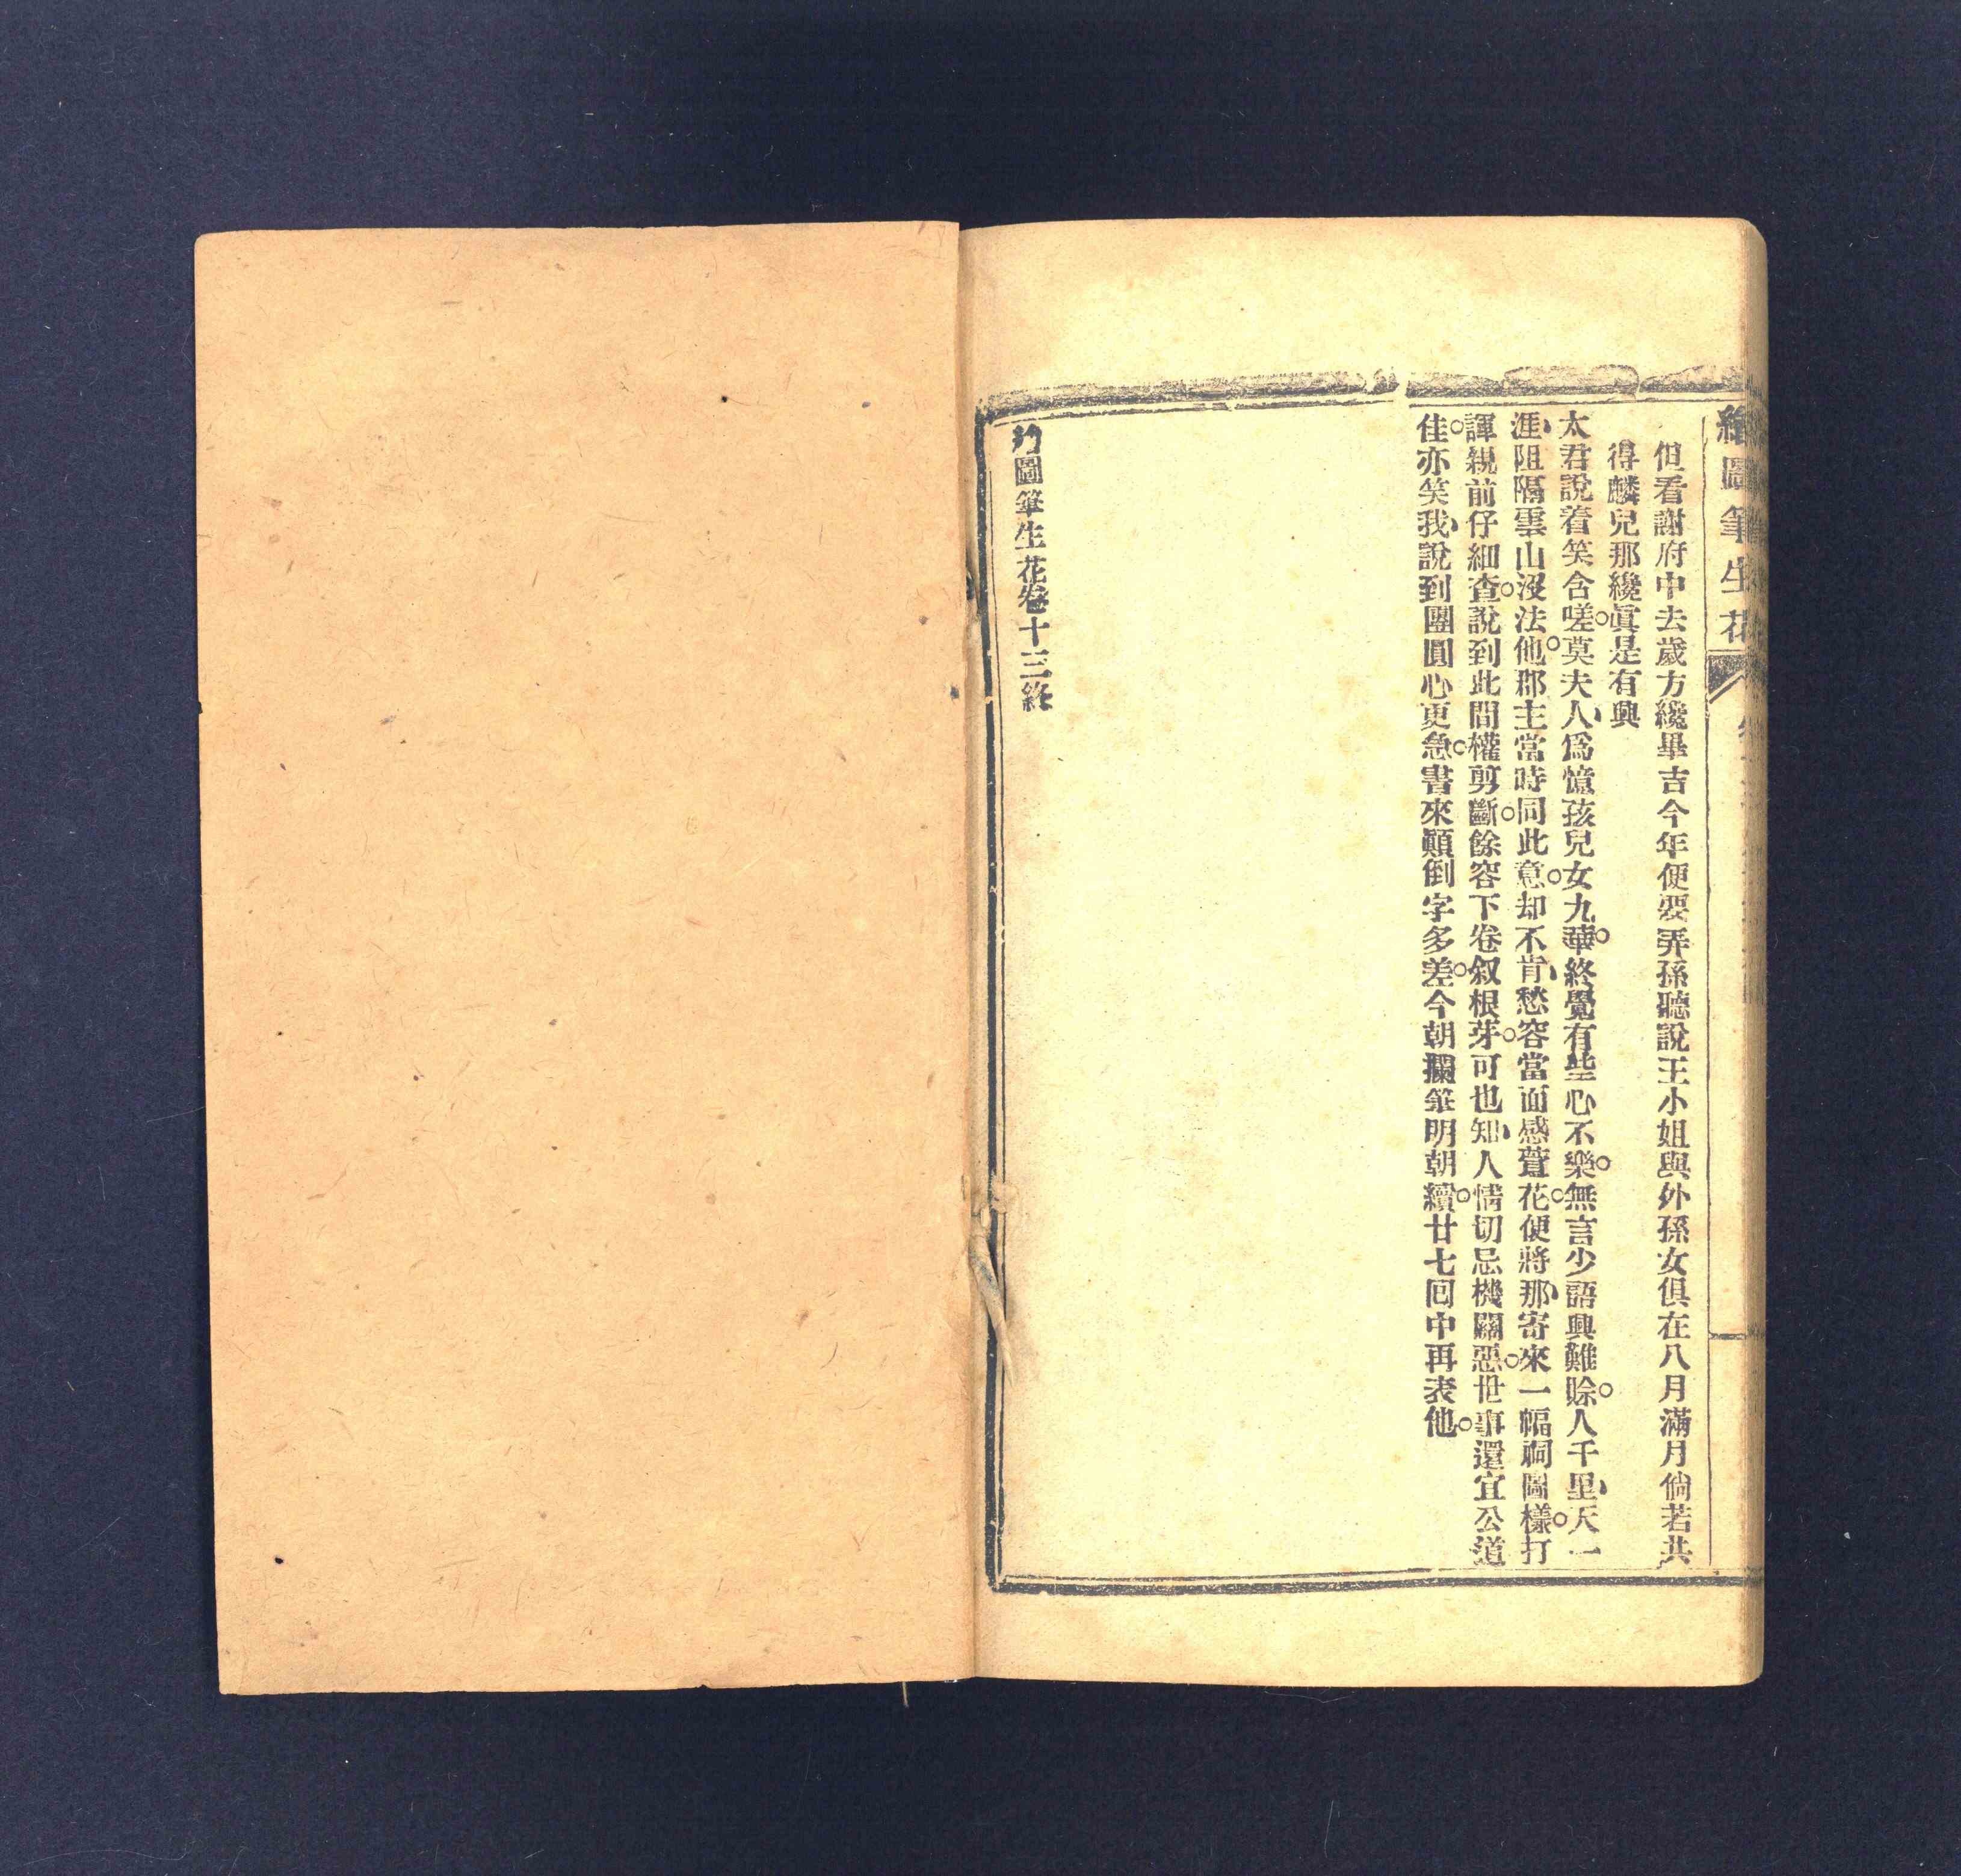 繪圖筆生花
但看謝府中去歲方纔畢吉今年便要弄孫聽說王小姐與外孫女俱在八月滿月倘若共
得麟兒那纔眞是有興
太君說着笑含嗟。莫夫人、爲憶孩兒女九華。終覺有些心不樂。無言少語興難賒。人千里、天一
涯、阻隔雲山沒法他。郡主當時同此意。却不肯、愁容當面感萱花。便將那、寄來一幅祠圖樣。打
諢親前仔細查。說到此間權剪斷。餘容下卷叙根芽。可也知、人情切忌機關惡。世事還宜公道
佳。亦笑我、說到團圓心更急。書來顛倒字多差。今朝擱筆明朝續。廿七回中再表他。
圖筆生花卷十三終